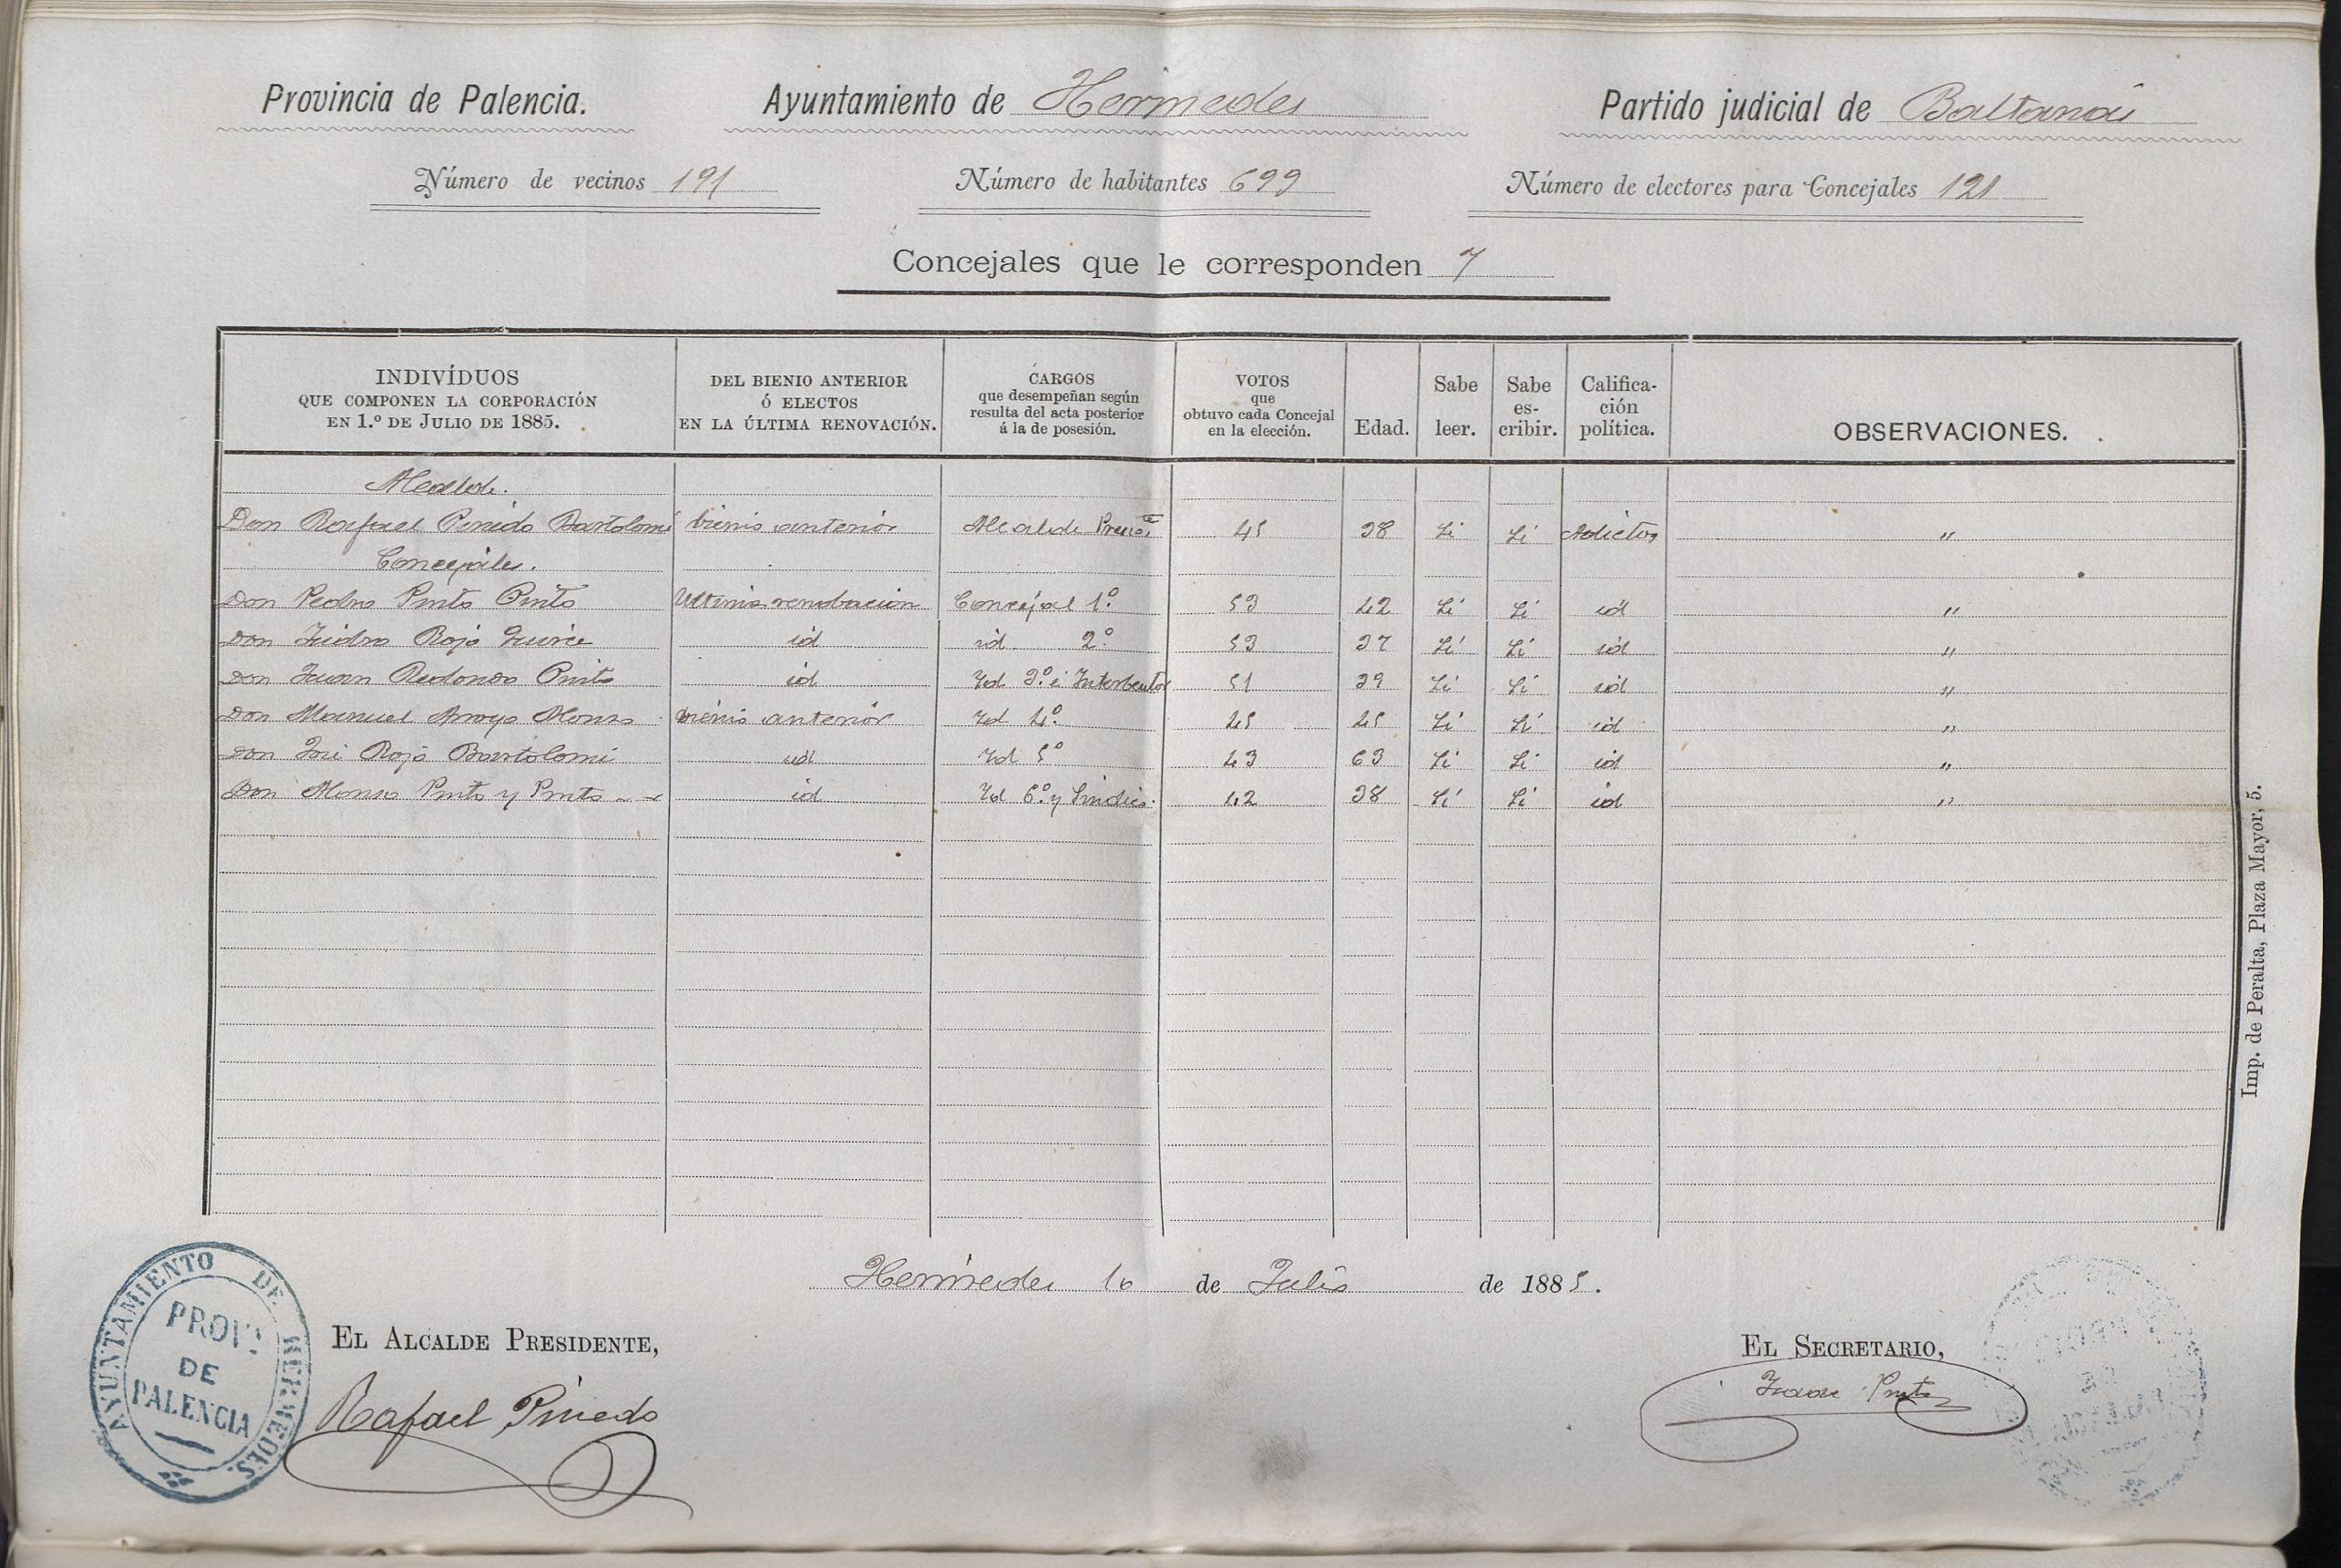 Provincia de Palencia. Ayuntamiento de Hermedes Partido judicial de Baltanás
Número de vecinos 191 Número de habitantes 699 Número de electores para Concejales 121
Concejales que le corresponden 7
INDIVÍDUOS QUE COMPONEN LA CORPORACIÓN EN 1.º DE JULIO DE 1885. DEL BIENIO ANTERIOR Ó ELECTOS EN LA ÚLTIMA RENOVACIÓN. CARGOS que desempeñan según resulta del acta posterior á la de posesión. VOTOS que obtuvo cada Concejal en la elección. Edad. Sabe leer. Sabe es-cribir. Califica-ción política. OBSERVACIONES.
Alcalde.
Don Rafael Pinedo Bartolomé bienio anterior Alcalde 45 38 Si Si Adictos "
Concejales.
Don Pedro Pinto Pinto Ultima renobacion Concejal 1.º 53 42 Si Si id "
Don Isidro Rojo id id. 2.º 53 37 Si Si id "
Don Juan Redondo Pinto id Id 3.º é Interbentor 51 39 Si Si id "
Don Manuel Arroyo Alonso bienio anterior Id 4.º 45 45 Si Si id "
Don José Rojo Bartolomé id Id 5º 43 63 Si Si id "
Don Alonso Pinto y Pinto id Id 6.º y Sindico. 42 38 Si Si id "
Hermedes 16 de Julio de 1885.
EL ALCALDE PRESIDENTE, EL SECRETARIO,
Rafael Pinedo Pinto
AYUNTAMIENTO DE HERMEDES.
PROV.ª
DE
PALENCIA
Imp. de Peralta, Plaza Mayor, 5.